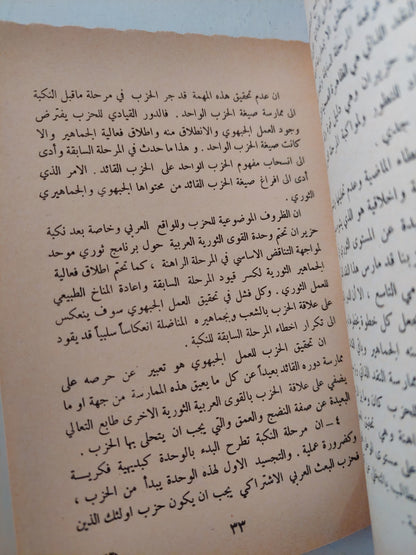 ان عدم تحقيق هذه المهمة قد جر الحزب في مرحلة ماقبل النكبة
الى ممارسة صيغة الحزب الواحد . فالدور القيادي للحزب يفترض
وجود العمل الجبهوي والانطلاق منه واطلاق فعالية الجماهير والا
كانت صيغة الحزب الواحد . وهذا ماحدث في المرحلة السابقة وأدى
الى انسحاب مفهوم الحزب الواحد على الحزب القائد . الامر الذي
أدى الى افراغ صيغة الحزب القائد من محتواها الجبهوي والجماهيري
الثوري .
ان الظروف الموضوعية للحزب وللواقع العربي وخاصة بعد نكبة
حزيران تحتم وحدة القوى الثورية العربية حول برنامج ثوري موحد
لمواجهة التناقض الاساسي في المرحلة الراهنة ، كما تحتم اطلاق فعالية
الجماهير الثورية لكسر قيود المرحلة السابقة واعادة المناخ الطبيعي
للعمل الثوري . وكل فشل في تحقيق العمل الجبهوي سوف ينعكس
على علاقة الحزب بالشعب وبجماهيره المناضلة انعكاساً سلبياً قد يقود
الى تكرار اخطاء المرحلة السابقة للنكبة .
ان تحقيق الحزب للعمل الجبهوي هو تعبير عن حرصه على
ممارسة دوره القائد بعيداً عن كل ما يعيق هذه الممارسة من جهة او ما
يضفي على علاقة الحزب بالقوى العربية الثورية الاخرى طابع التعالي
البعيدة عن صفة النضج والعمق والتي يجب ان يتحلى بها الحزب .
٤ – ان مرحلة النكبة تطرح البدء بالوحدة كبديهية فكرية
وكضرورة عملية . والتجسيد الاول لهذه الوحدة يبدأ من الحزب ،
فحزب البعث العربي الاشتراكي يجب ان يكون حزب اولئك الذين
٣٣